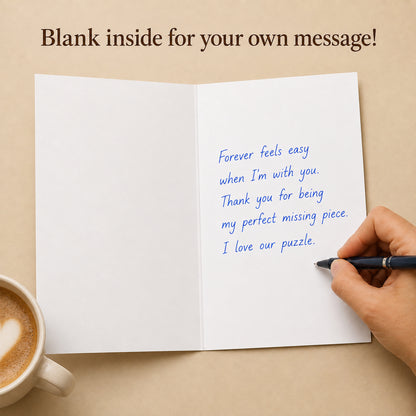 Blank inside for your own message!
Forever feels easy
when I'm with you.
Thank you for being
my perfect missing piece.
I love our puzzle.